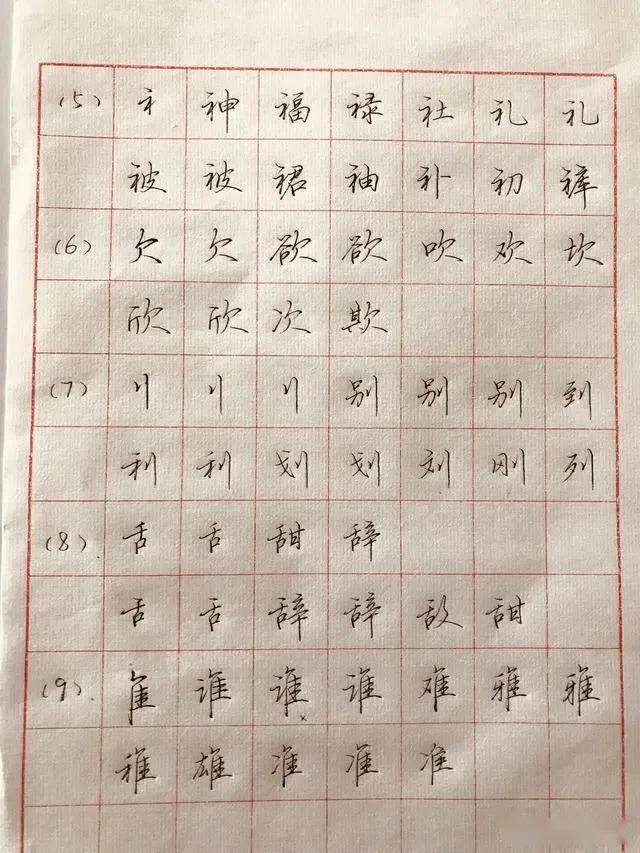 (5) 礻 神 福 禄 社 礼 礼
被 被 裙 袖 补 初 裤
(6) 欠 欠 欲 欲 吹 欢 坎
欣 欣 次 欺
(7) 刂 刂 刂 别 别 别 到
利 利 划 划 刘 刚 列
(8) 舌 舌 甜 辞
舌 舌 辞 辞 敌 甜
(9) 隹 谁 谁 谁 难 雅 雅
稚 雄 准 准 准